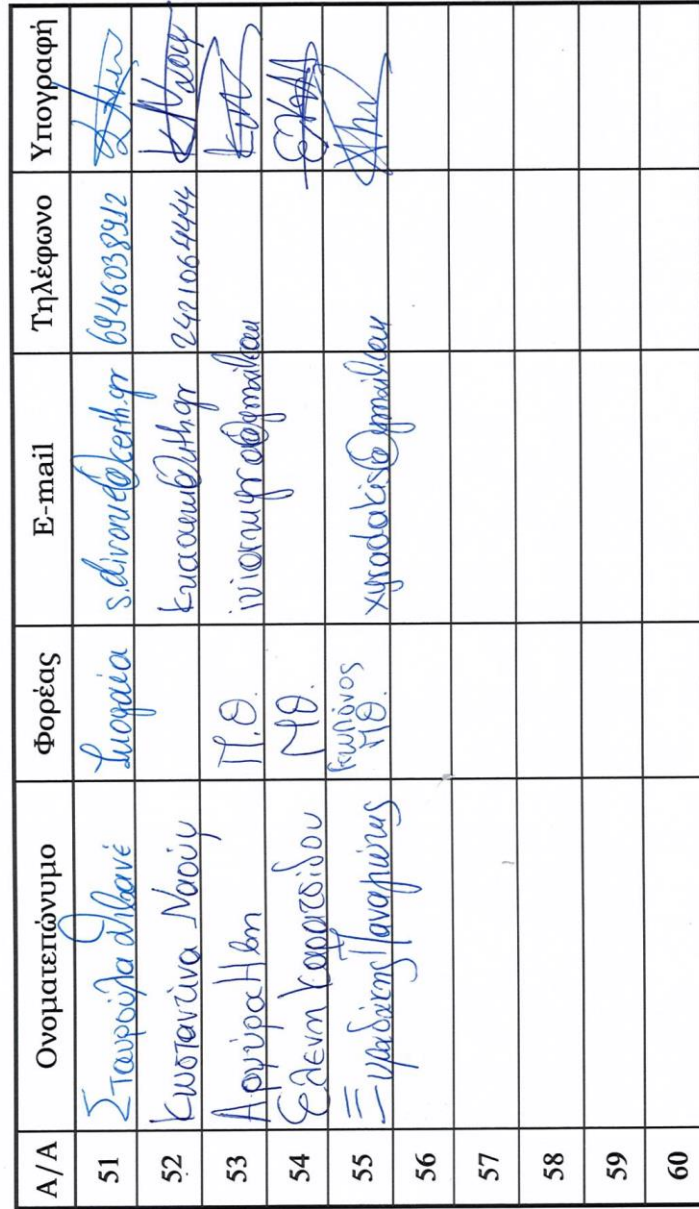 Α/Α Ονοματεπώνυμο Φορέας E-mail Τηλέφωνο Υπογραφή
51 Σταυρούλα Διβανέ s.divane@certh.gr 6946038912
52 Κωσταντίνα Νασιου 2421064444
53 Αργύρα Ηβη Π.Θ.
54 Ελενη Καρατσίδου ΜΘ.
55 Ξυραδάκης Παναγιώτης Γεωπόνος ΜΘ. xyradakis@gmail.com
56
57
58
59
60